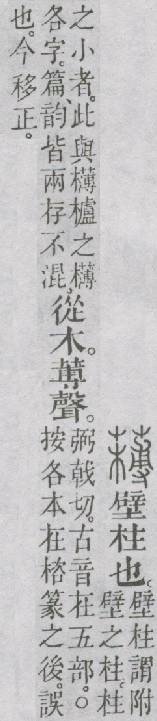 欂壁柱也。
壁柱謂附
壁之柱。柱
之小者。此與欂櫨之欂
各字。篇、韵皆兩存不混。
從木。䔈聲。
弼戟切。古音在五部。○
按各本在㮞篆之後。誤
也。今移正。